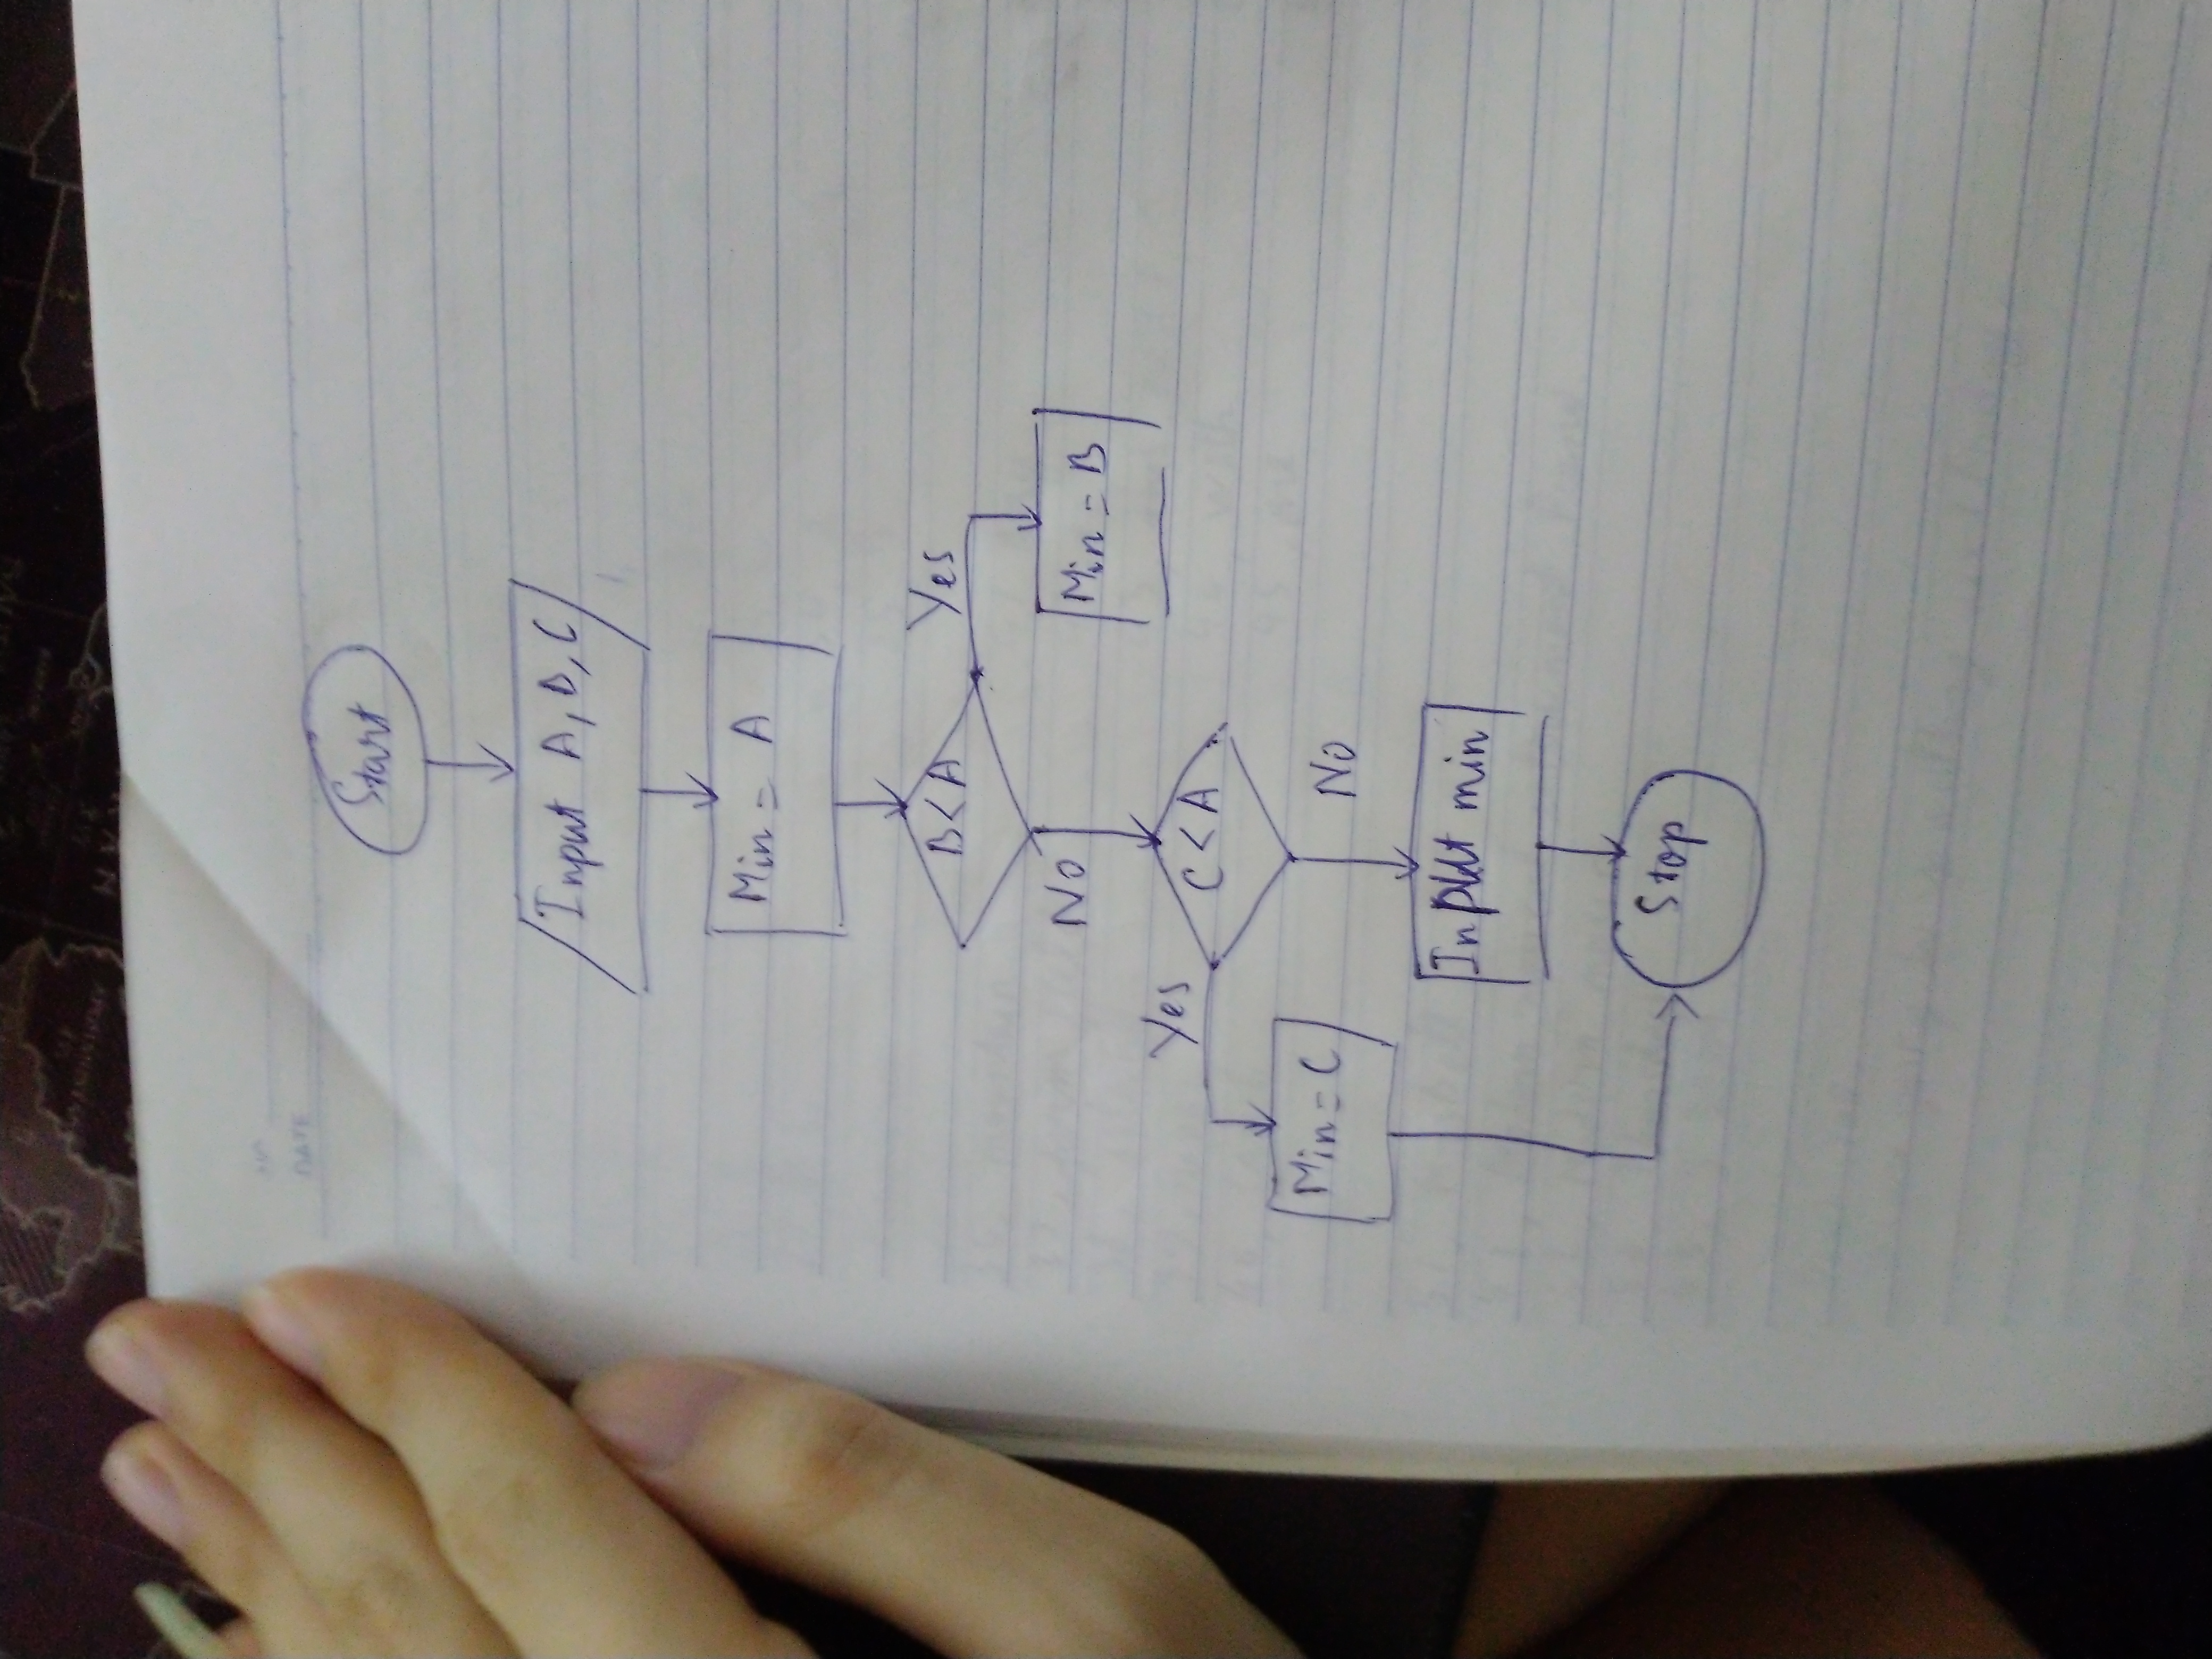 DATE
Start
Input A, B, C
Min = A
B < A
Yes
No
Min = B
Yes
C < A
Min = C
No
Input min
Stop